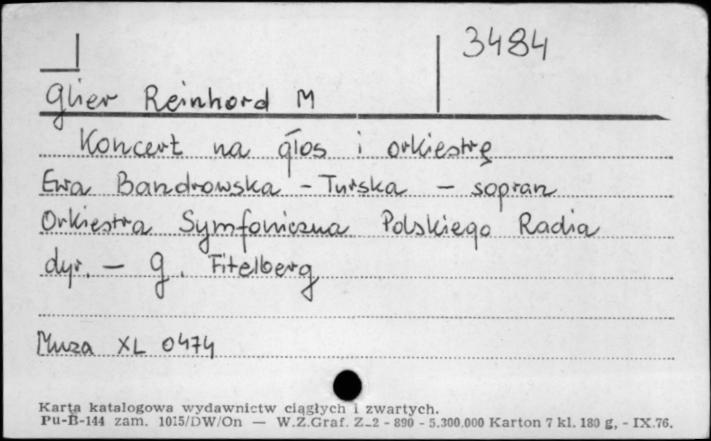 3484
Glier Reinhord M
Koncert na głos i orkiestrę
Ewa Bandrowska - Turska - sopran
Orkiestra Symfoniczna Polskiego Radia
dyr. - G. Fitelberg
Muza XL 0474
Karta katalogowa wydawnictw ciągłych i zwartych.
Pu-B-144 zam. 1015/DW/On — W.Z.Graf. Z-2 - 890 - 5.300.000 Karton 7 kl. 180 g, - IX.76.